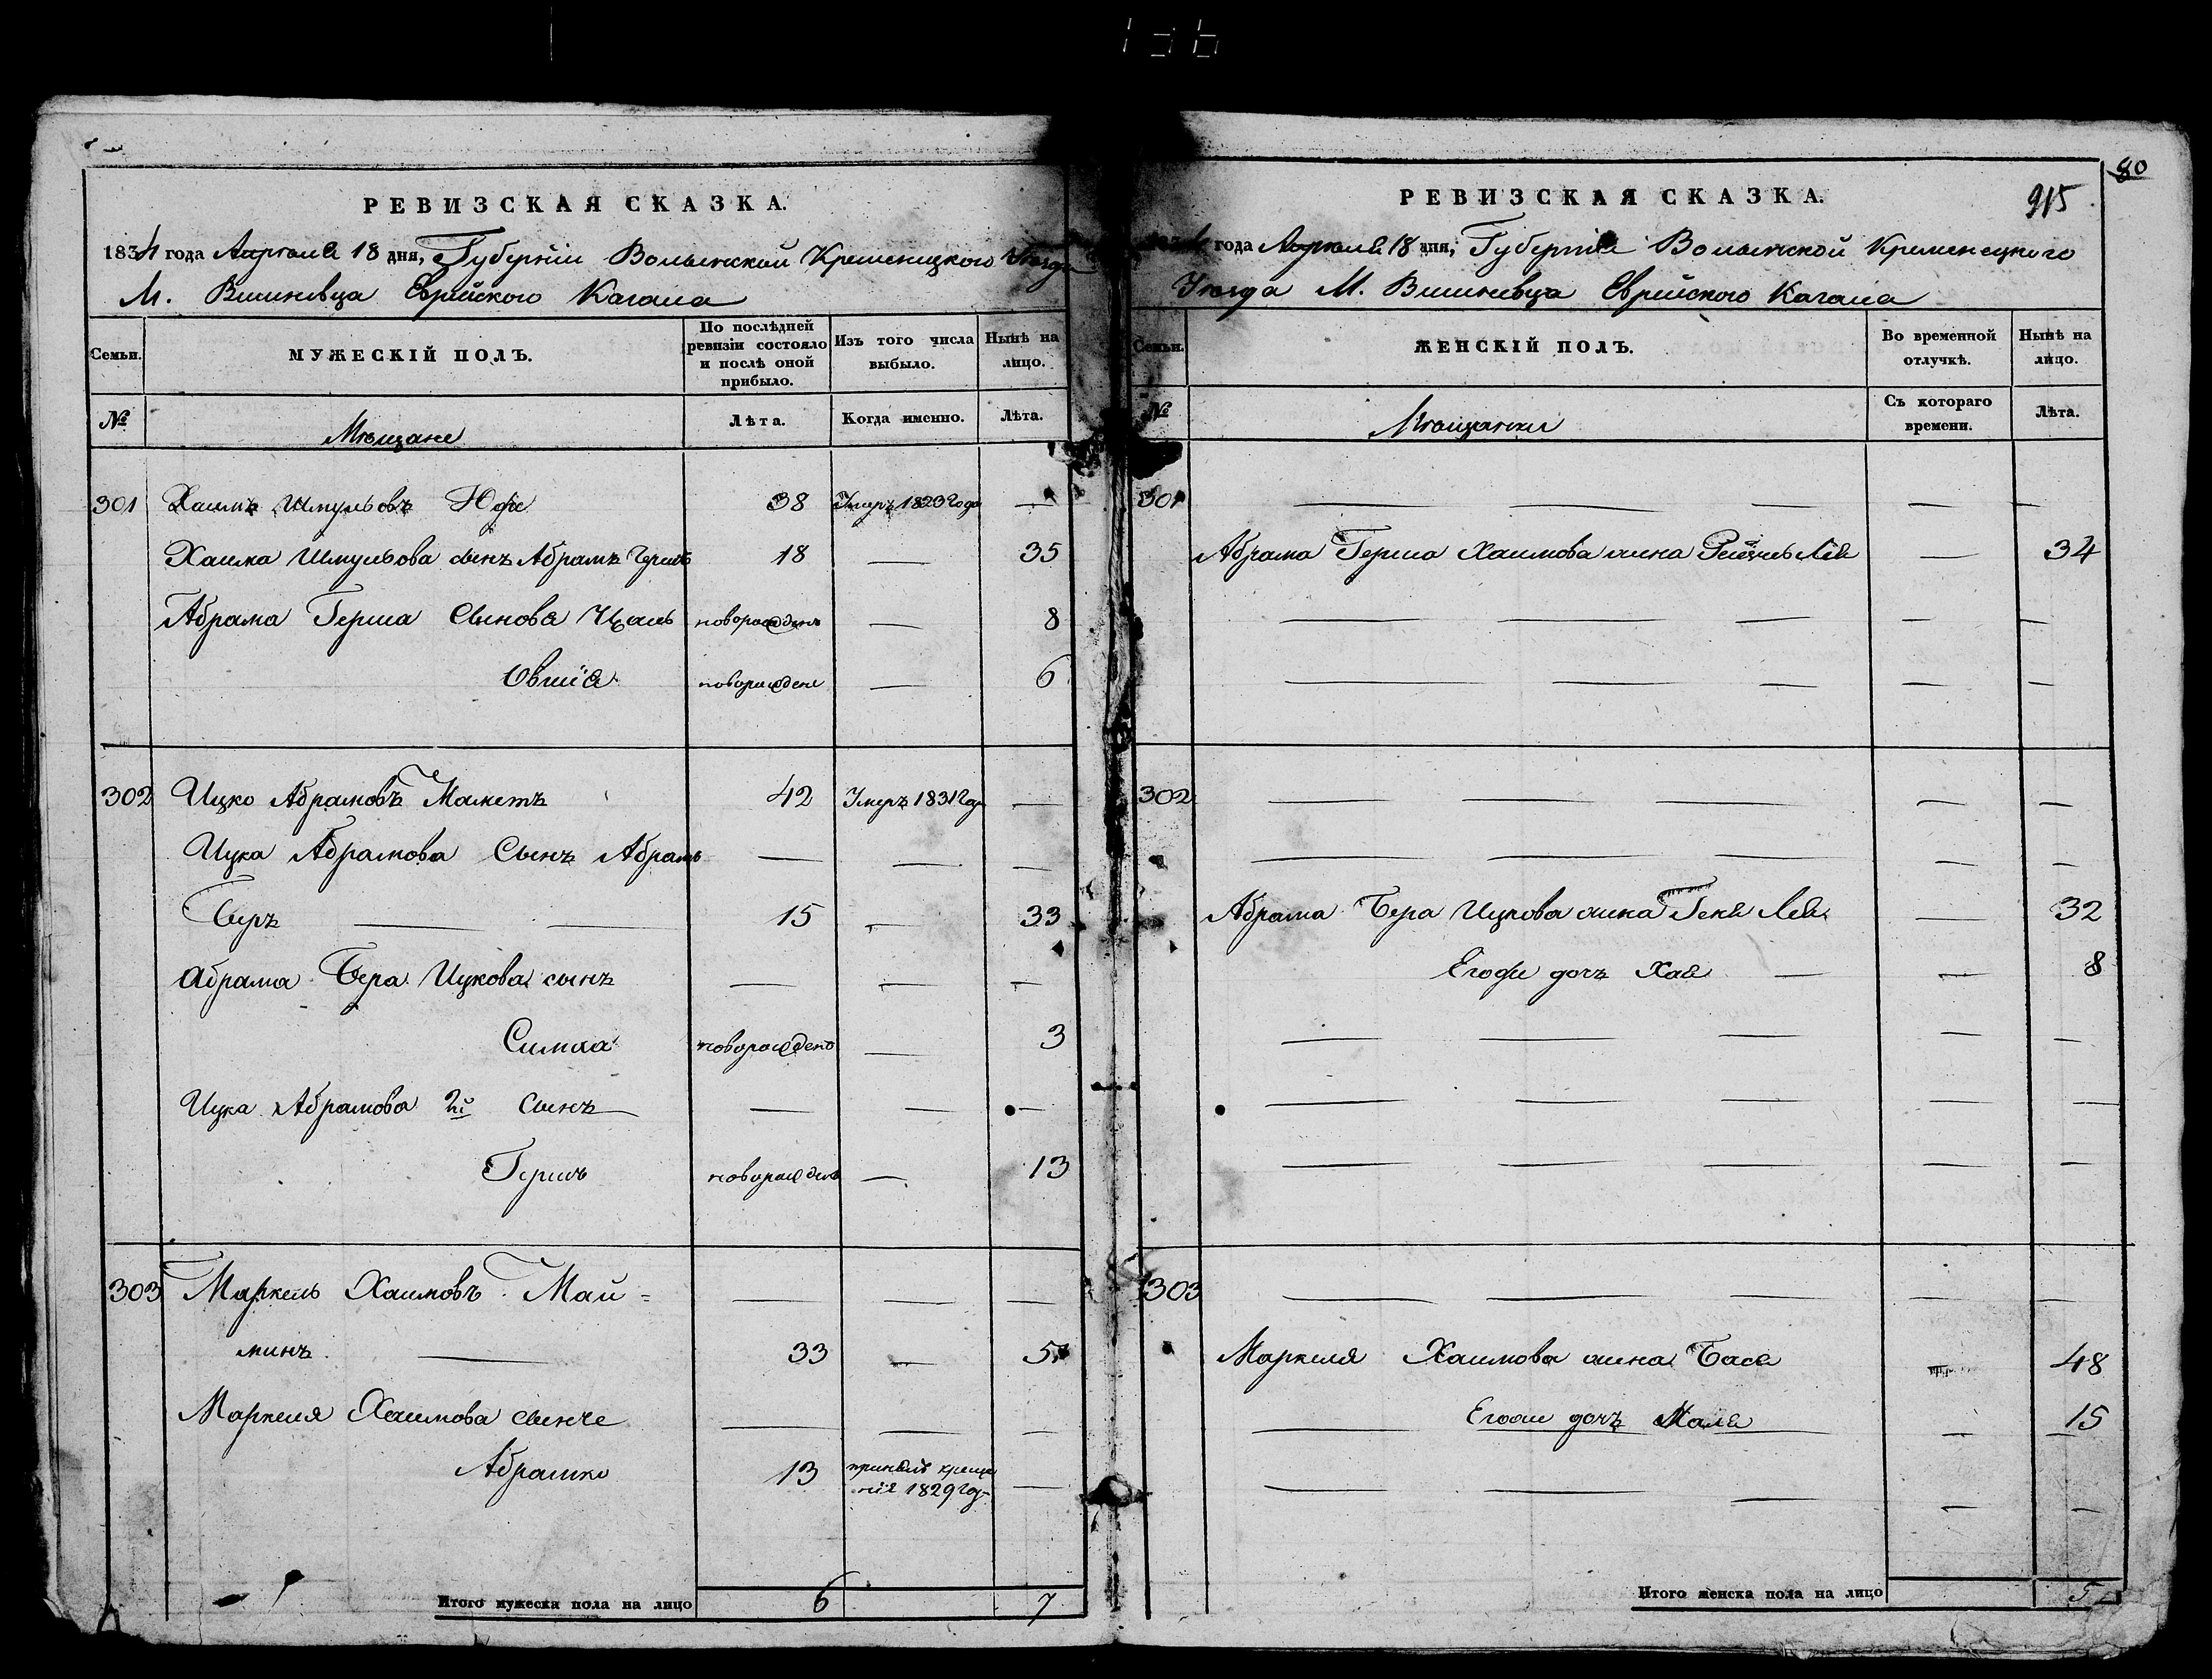 80
915
РЕВИЗСКАЯ СКАЗКА.
1834 года Апреля 18 дня, Губернии Волынской Кременецкого Уезда
М. Вишневца Еврейского Кагала
Семьи. МУЖЕСКІЙ ПОЛЪ. По послѣдней ревизіи состояло и послѣ оной прибыло. Изъ того числа выбыло. Нынѣ на лицо.
№ Мещане Лѣта. Когда именно. Лѣта.
301 Хаимъ Шмульовъ 38 Умеръ 1823 года —
Хаима Шмульова сынъ Абрамъ Гершъ 18 — 35
Абрама Герша сыновя новорожденъ — 8
Овшія новорожденъ — 6
302 Ицко Абрамовъ 42 Умеръ 1831 года —
Ицка Абрамова Сынъ Абрамъ — — —
Беръ — — 15 — 33
Абрама Бера Ицкова сынъ — — —
Симха новорожденъ — 3
Ицка Абрамова 2й сынъ — — —
Гершъ новорожденъ — 13
303 Маркель Хаимовъ Май= — — —
минъ — 33 — 51
Маркеля Хаимова сынъ — — —
Абрамко 13 принялъ креще —
ніе 1829 год
Итого мужеска пола на лицо 6 7
РЕВИЗСКАЯ СКАЗКА.
1834 года Апреля 18 дня, Губернія Волынской Кременецкого
Уезда М. Вишневца Еврейского Кагала
Семьи. ЖЕНСКІЙ ПОЛЪ. Во временной отлучкѣ. Нынѣ на лицо.
№ Мещанки Съ котораго времени. Лѣта.
301 — — — — —
Абрама Герша Хаимова жена Лея — 34
— — — — —
— — — — —
302 — — — — —
— — — — —
Абрама Бера Ицкова жена Геня Лея — 32
Егоже дочъ Хая — — 8
— — — — —
— — — — —
— — — — —
303 — — — — —
Маркеля Хаимова жена Бася — 48
— Егоже дочъ Маля — 15
— — — — —
Итого женска пола на лицо 5